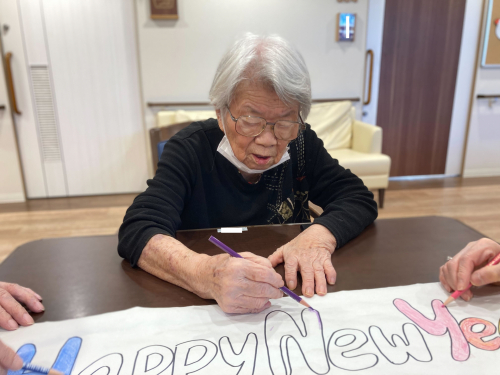 Happy New Ye